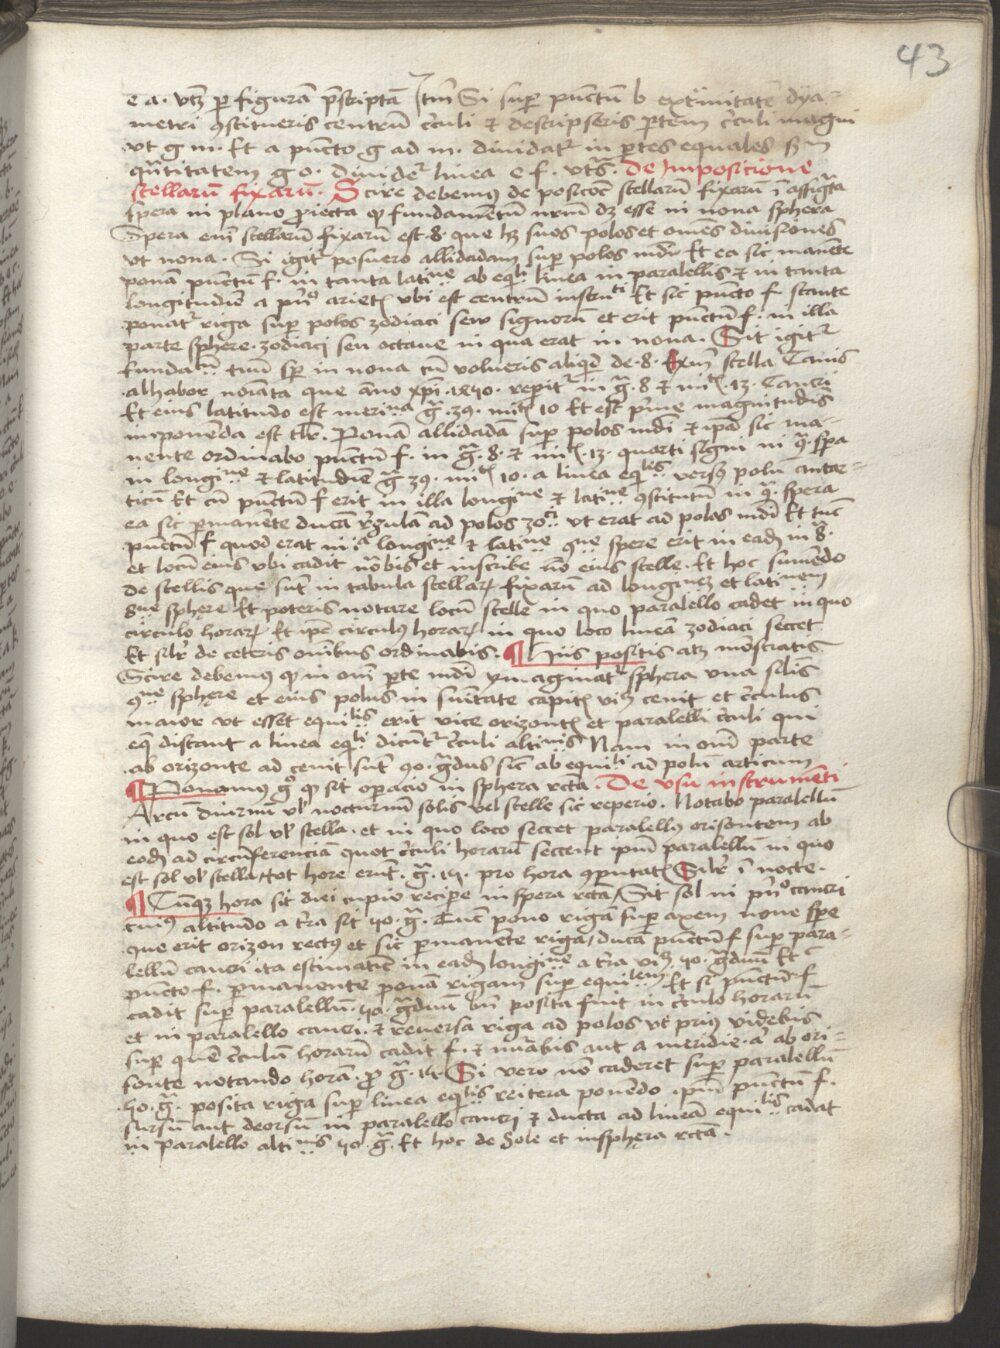 43
e a. vtz per figurā p̄scriptā Itm̄ Si super punctū b extremitatē dya-
metri ꝯstitueris centrū circuli et descripseris ꝑtem circuli magni
vt g m. Et a puncto g ad m. dividatr in ꝑtes equales scdm
qūtitatem g o. dividetr linea e f. vts̄. De Imposicione
stellarū fixarū. Scire debemus de posicōe stellarū fixarū ī
spera in plano proiecta ꝙ fundamentū nrm̄ dz esse in nona sphera
Spera enī stellarū fixarū est .8. que hz suos polos et omēs divisiones
vt nona. Si igitr posuero allidadam super polos mdi Et ea sic manēte
ponā punctū f. in tanta latine ab eqli linea in paralellis et in tanta
longitudīe a pn̄o arietꝭ vbi est centrū instruti Et sic puncto f. stante
ponatr riga super polos zodiaci seu signorū et erit punctū f. in illa
parte sphere zodiaci seu octave in qua erat in nona. Sit igitr
fundam̄ tuū semp in nona cū volueris aliqd de .8. Exm̄ stella Canis
alhabor noīata que āno xpi reperitr in gr̄. 8 et mitꝭ. 13. Cancri
Et eius latitudo est merina gr̄. 39. mitꝭ 10 Et est prime magnitudīs
imponēda est tlr̄. Ponā allidadā super polos mdi et ipā sic ma-
nente ordinabo punctū f. in gr̄. 8. et mitꝭ. 13. quarti signi in 9. spera
in longine et latitudīe gr̄ 39. mitꝭ 10. a linea eqlis versꝰ polū antar-
ticū Et cū punctū f erit in illa longine et latine ꝯstitutū in 9. spera
ea sic ꝑmanēte ducā regulam ad polos zoci vt erat ad polos mdi Et tūc
punctū f quod erat in longine et latine 9ne spere erit in eadē in 8.
et locū eius vbi cadit nōbis et inscribe nō eius stelle. Et hoc sumēdo
de stellis que sūt in tabula stellarꝝ fixarū ad longinem et latinem
8ne sphere Et poteris notare locū stelle in quo paralello cadet in quo
circulo horarꝝ Et ipē circulus horarꝝ in quo loco lineā zodiaci seccet
Et silr̄ de ceteris omībus ordinabis. ¶ Hiis positis atqꝫ mōstratis
Scire debemus ꝙ in omī ꝑte mdi ymaginatr sphera vna silis
9ne sphere et eius polus in sumitate capitꝭ viz cenit et circulus
maior vt esset equilis erit vice orizontꝭ et paralelli circuli qui
eqꝫ distant a linea eqli dicūtr circuli altinis Nam in omī parte
ab orizonte ad cenit sūt 90. gradus sic ab equili ad polū articum
¶ Ponamus gͦ ꝙ sit operacio in sphera rcta. De vsu instrumēti
Arcū diurnū vl nocturnū solis vel stelle sic reperio. Notabo paralellū
in quo est sol vl stella. et in quo loco seccet paralellus orisontem ab
eodē ad circūferenciā quot circuli horarū seccent ipm̄ paralellū in quo
est sol vl stella tot hore erūt. gr̄. 15. pro hora ꝯputatꝭ Silr̄ ī nocte.
¶ Cūqꝫ hora sit diei cupio recipere in spera rcta Sit sol in pn̄o cancri
cuius altitudo a tr̄a sit 40. gr̄. Tūc pono riga super axem none spe
que erit orizon rectꝰ et sic ꝑmanēte riga ducā punctū f super para-
lellū cancri ita estimatīe in eadē longine a tr̄a viz 40. graduū Et
puncto f. ꝑmanente ponā rigam super equilem Et si punctū f
cadit super paralellū .40. graduū bn̄ posita fuit in circulo horarū
et in paralello cancri. et reversa riga ad polos vt prius videbis
super quē circulū horarū cadit f. et nūabis aut a meridie aut ab ori-
sonte notando horā. ꝓ gr̄. 15. Si vero nō caderet super paralellū
40. gr̄. posita riga super linea eqlis reitera ponēdo ipm̄ punctū f.
sursū aut deorsū in paralello cancri et ducta ad lineā equilis cadat
in paralello altinis 40. gr̄. Et hoc de Sole et in sphera rcta.